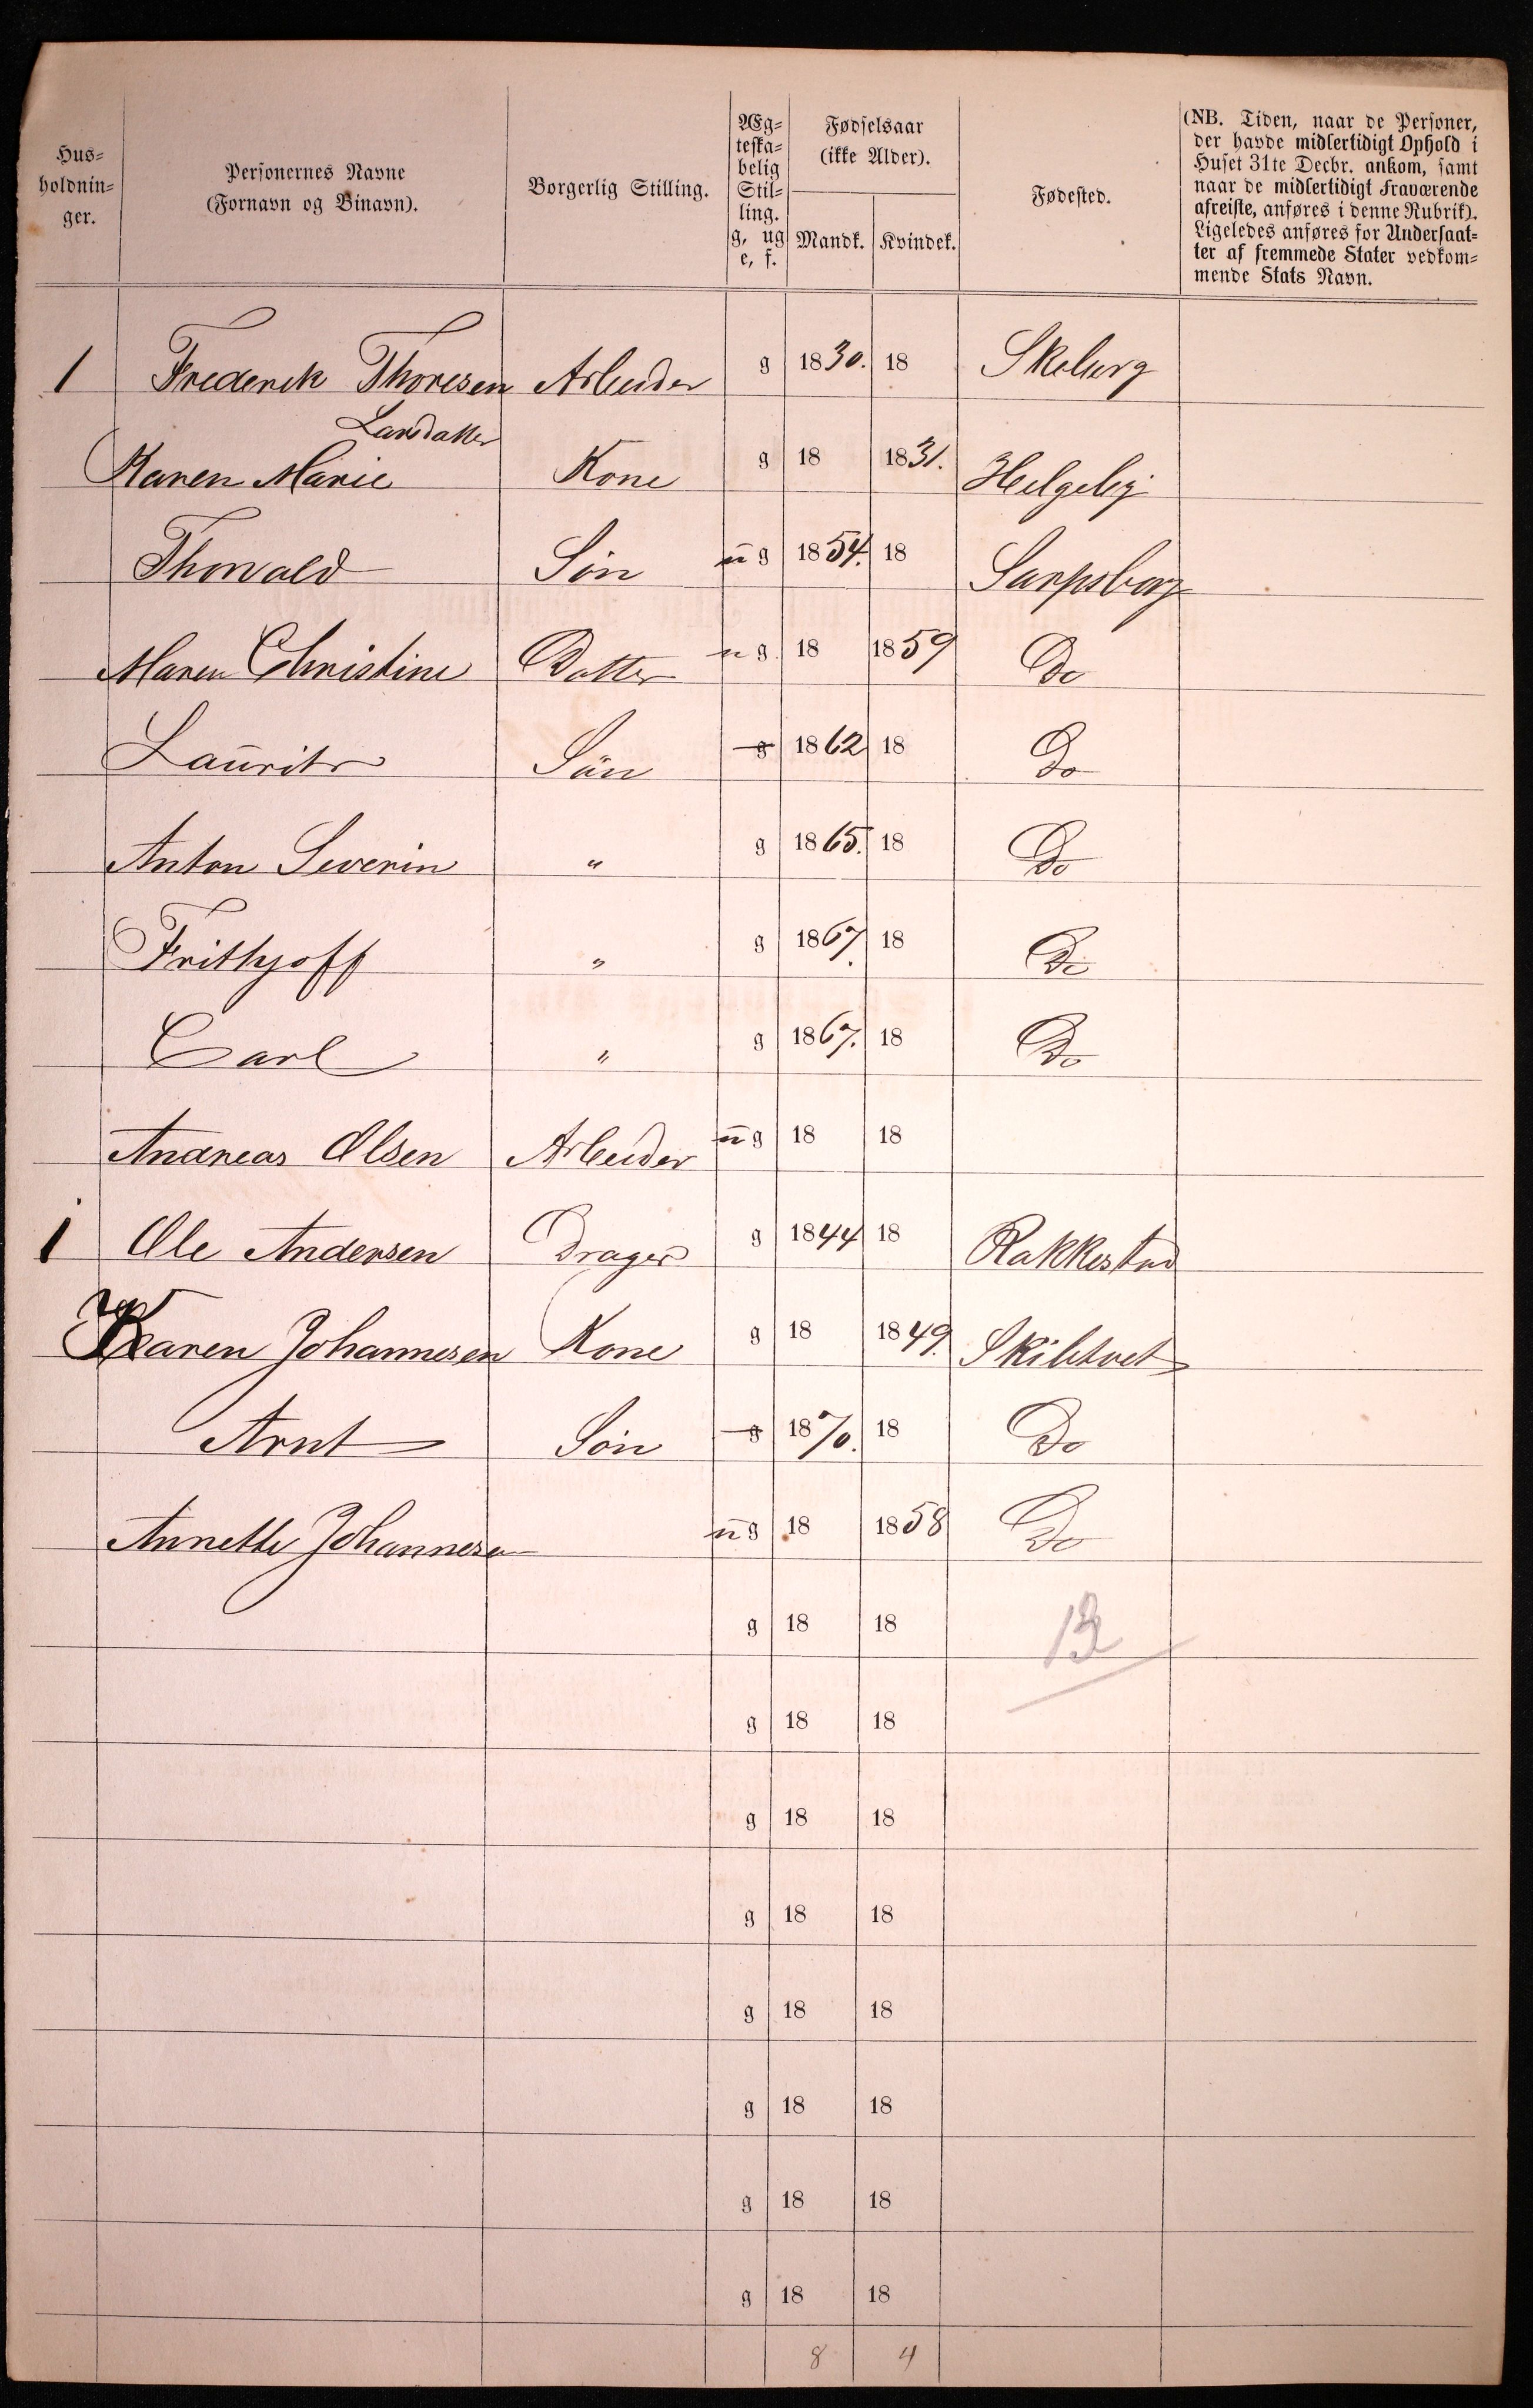 Hus-
holdnin-
ger.
Personernes Navne
(Fornavn og Binavn).
Borgerlig Stilling.
Æg-
teska-
belig
Stil-
ling.
g, ug
e, f.
Fødselsaar
(ikke Alder).
Mandk. Kvindek.
Fødested.
(NB. Tiden, naar de Personer,
der havde midlertidigt Ophold i
Huset 31te Decbr. ankom, samt
naar de midlertidigt Fraværende
afreiste, anføres i denne Rubrik).
Ligeledes anføres for Undersaat-
ter af fremmede Stater vedkom-
mende Stats Navn.
1 Frederik Thoresen Arbeider g 1830. 18 Skeberg
Larsdatter
Karen Marie Kone g 18 1831. Helgeby
Thorvald Sön ug 1854. 18 Sarpsborg
Maren Christine Datter ug 18 1859 Do
Laurits Sön g 1862 18 Do
Anton Severin " g 1865. 18 Do
Frithjoff " g 1867. 18 Do
Carl " g 1867. 18 Do
Andreas Olsen Arbeider ug 18 18
1 Ole Andersen Drager g 1844 18 Rakkestad
Karen Johannesen Kone g 18 1849. Skibtvet
Arnt Sön g 1870. 18 Do
Annette Johannesen ug 18 1858 Do
g 18 18
g 18 18
g 18 18
g 18 18
g 18 18
g 18 18
g 18 18
g 18 18
8 4